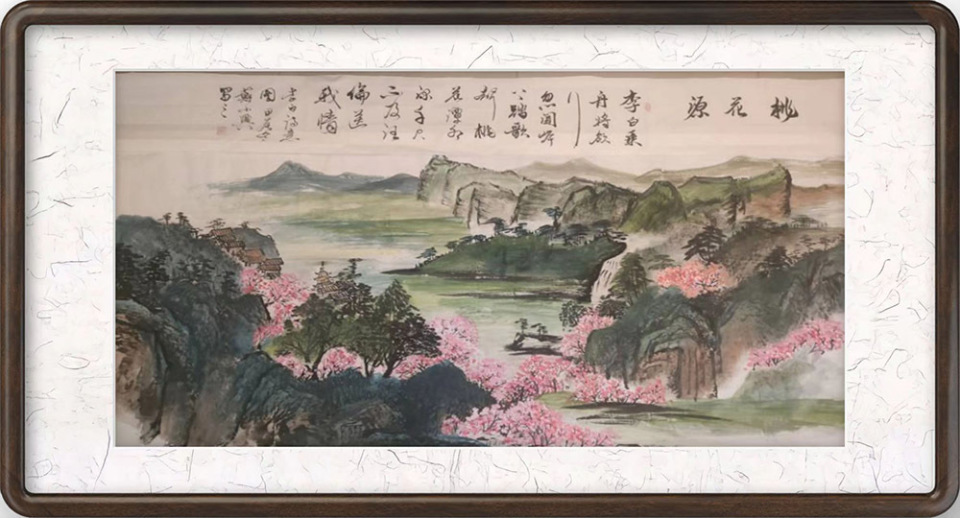 桃花源
李白乘
舟将欲
行
忽闻岸
上踏歌
声桃
花潭水
深千尺
不及汪
倫送
我情
李白诗意